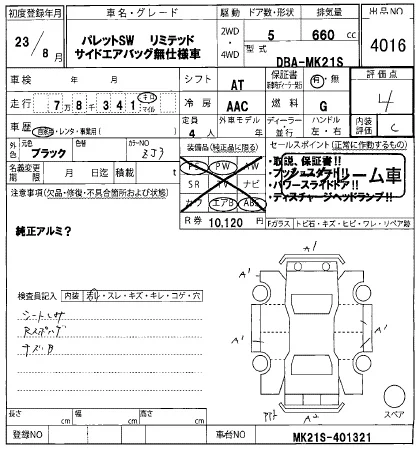 初度登録年月 車名・グレード 駆動 ドア数・形状 排気量 出品NO
23/8月 パレットSW リミテッド サイドエアバッグ無仕様車 2WD・4WD 5 660 cc 4016
型式 DBA-MK21S
車検 年 月 シフト AT 保証書 有・無 評価点
走行 7万8千341 キロ マイル 冷房 AAC 燃料 G 4
車歴 自家用・レンタ・事業用( ) 定員 4人 外車モデル 年 ディーラー 並行 ハンドル 左・右 内装評価 C
外色 元色 ブラック 色替 カラーNO ZJ3 装備品(純正品に限る) セールスポイント(正常に作動するもの)
名義変更期限 月 日迄 積載 t PS PW AW
SR ナビ
エアB ABS
・取説、保証書!!
・プッシュスタート!!
・パワースライドドア!!
・ディスチャージヘッドランプ!!
ーム車
注意事項(欠品・修復・不具合箇所および状態)
R券 10,120 円 Fガラス トビ石・キズ・ヒビ・ワレ・リペア跡
純正アルミ?
A' A'
検査員記入 内装 汚レ・スレ・キズ・キレ・コゲ・穴
A' A'
シート
キズ
A2
スペア
長さ cm 幅 cm 高さ cm
登録NO 車台NO MK21S-401321